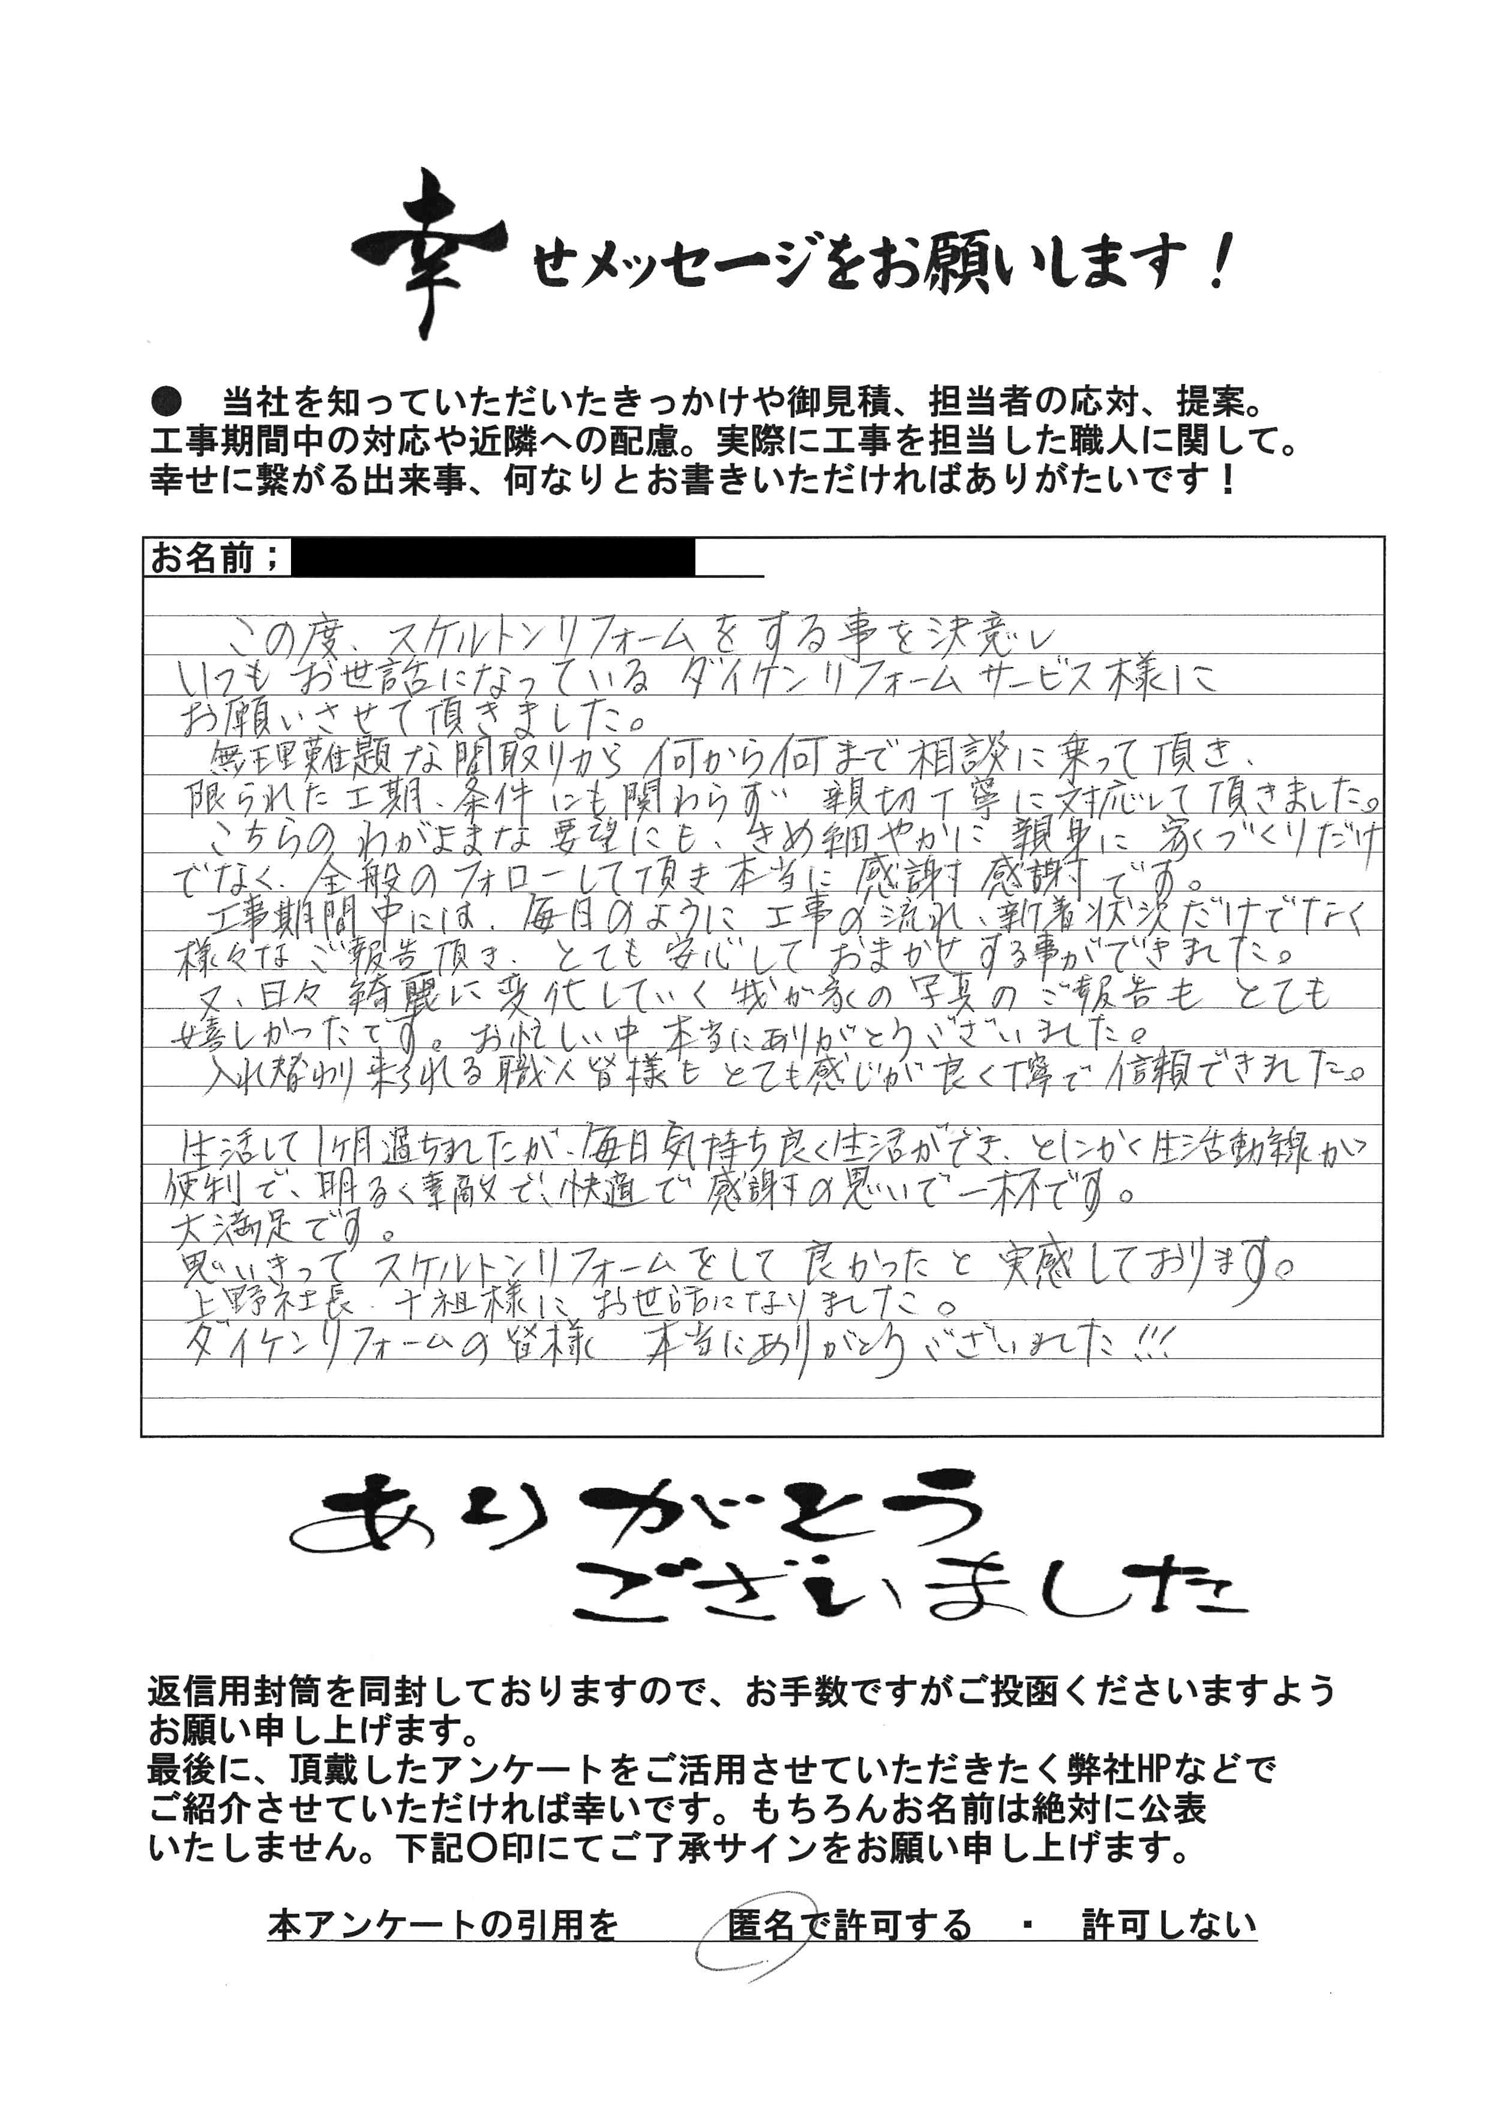 幸せメッセージをお願いします！
● 当社を知っていただいたきっかけや御見積、担当者の応対、提案。
工事期間中の対応や近隣への配慮。実際に工事を担当した職人に関して。
幸せに繋がる出来事、何なりとお書きいただければありがたいです！
お名前；
この度、スケルトンリフォームをする事を決意し
いつもお世話になっているダイケンリフォームサービス様に
お願いさせて頂きました。
無理難題な間取りから何から何まで相談に乗って頂き、
限られた工期、条件にも関わらず親切丁寧に対応して頂きました。
こちらのわがままな要望にも、きめ細やかに親身に家づくりだけ
でなく、全般のフォローして頂き本当に感謝感謝です。
工事期間中には、毎日のように工事の流れ、新着状況だけでなく
様々なご報告頂き、とても安心しておまかせする事ができました。
又、日々綺麗に変化していく我が家の写真のご報告もとても
嬉しかったです。お忙しい中本当にありがとうございました。
入れ替わり来られる職人皆様もとても感じが良く丁寧で信頼できました。
生活して1ヶ月過ぎましたが、毎日気持ち良く生活ができ、とにかく生活動線が
便利で、明るく素敵で、快適で感謝の思いで一杯です。
大満足です。
思いきってスケルトンリフォームをして良かったと実感しております。
上野社長、十祖様にお世話になりました。
ダイケンリフォームの皆様 本当にありがとうございました!!!
ありがとう
ございました
返信用封筒を同封しておりますので、お手数ですがご投函くださいますよう
お願い申し上げます。
最後に、頂戴したアンケートをご活用させていただきたく弊社HPなどで
ご紹介させていただければ幸いです。もちろんお名前は絶対に公表
いたしません。下記〇印にてご了承サインをお願い申し上げます。
本アンケートの引用を 匿名で許可する ・ 許可しない